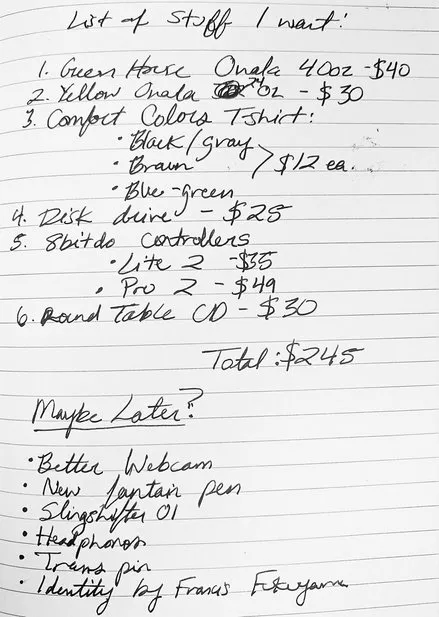 List of stuff I want:
1. Green House Owala 40oz - $40
2. Yellow Owala 24oz - $30
3. Comfort Colors T-shirt:
• Black/gray
• Brown > $12 ea.
• Blue-green
4. Disk drive - $25
5. 8bitdo controllers
• Lite 2 - $35
• Pro 2 - $49
6. Round Table CD - $30
Total: $245
Maybe Later?
• Better Webcam
• New fantain pen
• Slingshifter 01
• Headphones
• Trans pin
• Identity by Francis Fukuyama